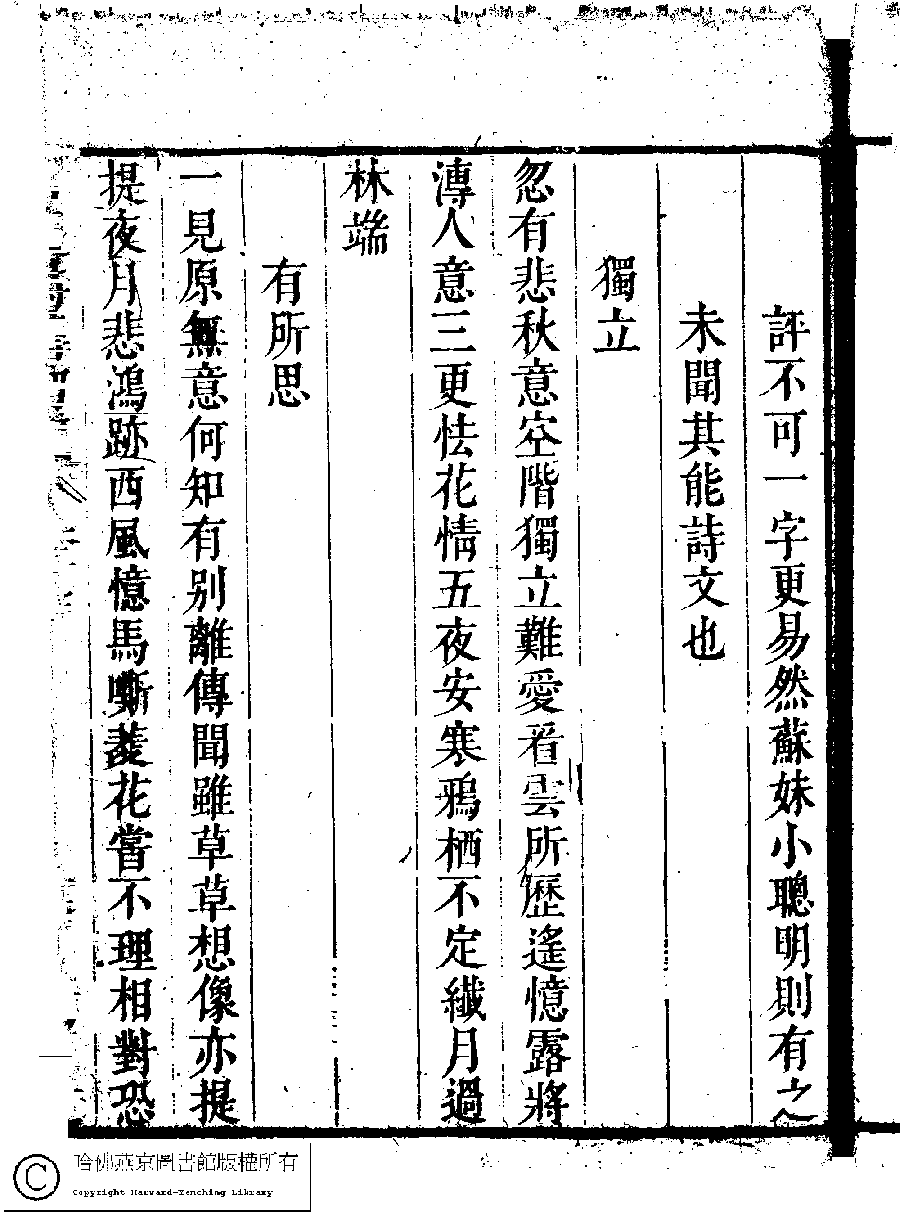 評不可一字更易然蘇妹小聰明則有之
未聞其能詩文也
獨立
忽有悲秋意空階獨立難愛看雲所歷遙憶露將
漙人意三更怯花情五夜安寒鴉栖不定纖月過
林端
有所思
一見原無意何知有别離傳聞雖草草想像亦提
提夜月悲鴻跡西風憶馬嘶菱花嘗不理相對恐
哈佛燕京圖書館版權所有
Copyright Harvard-Yenching Library